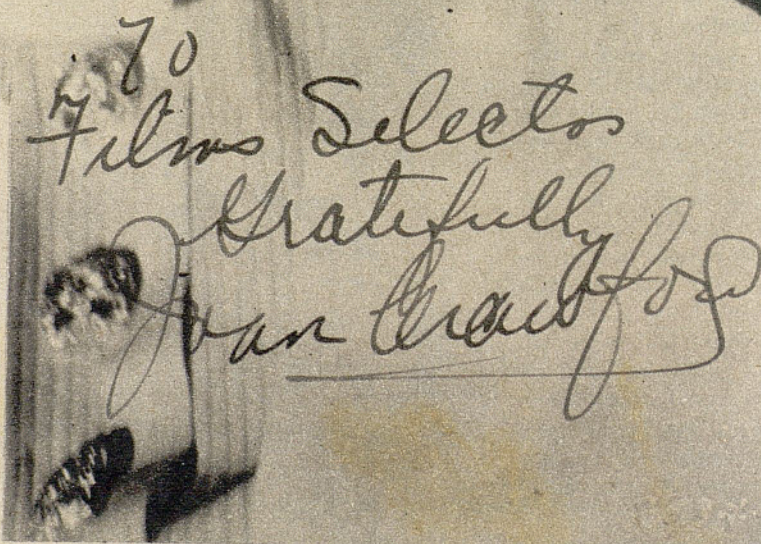 To
Films Selectos
Gratefully
Joan Crawford